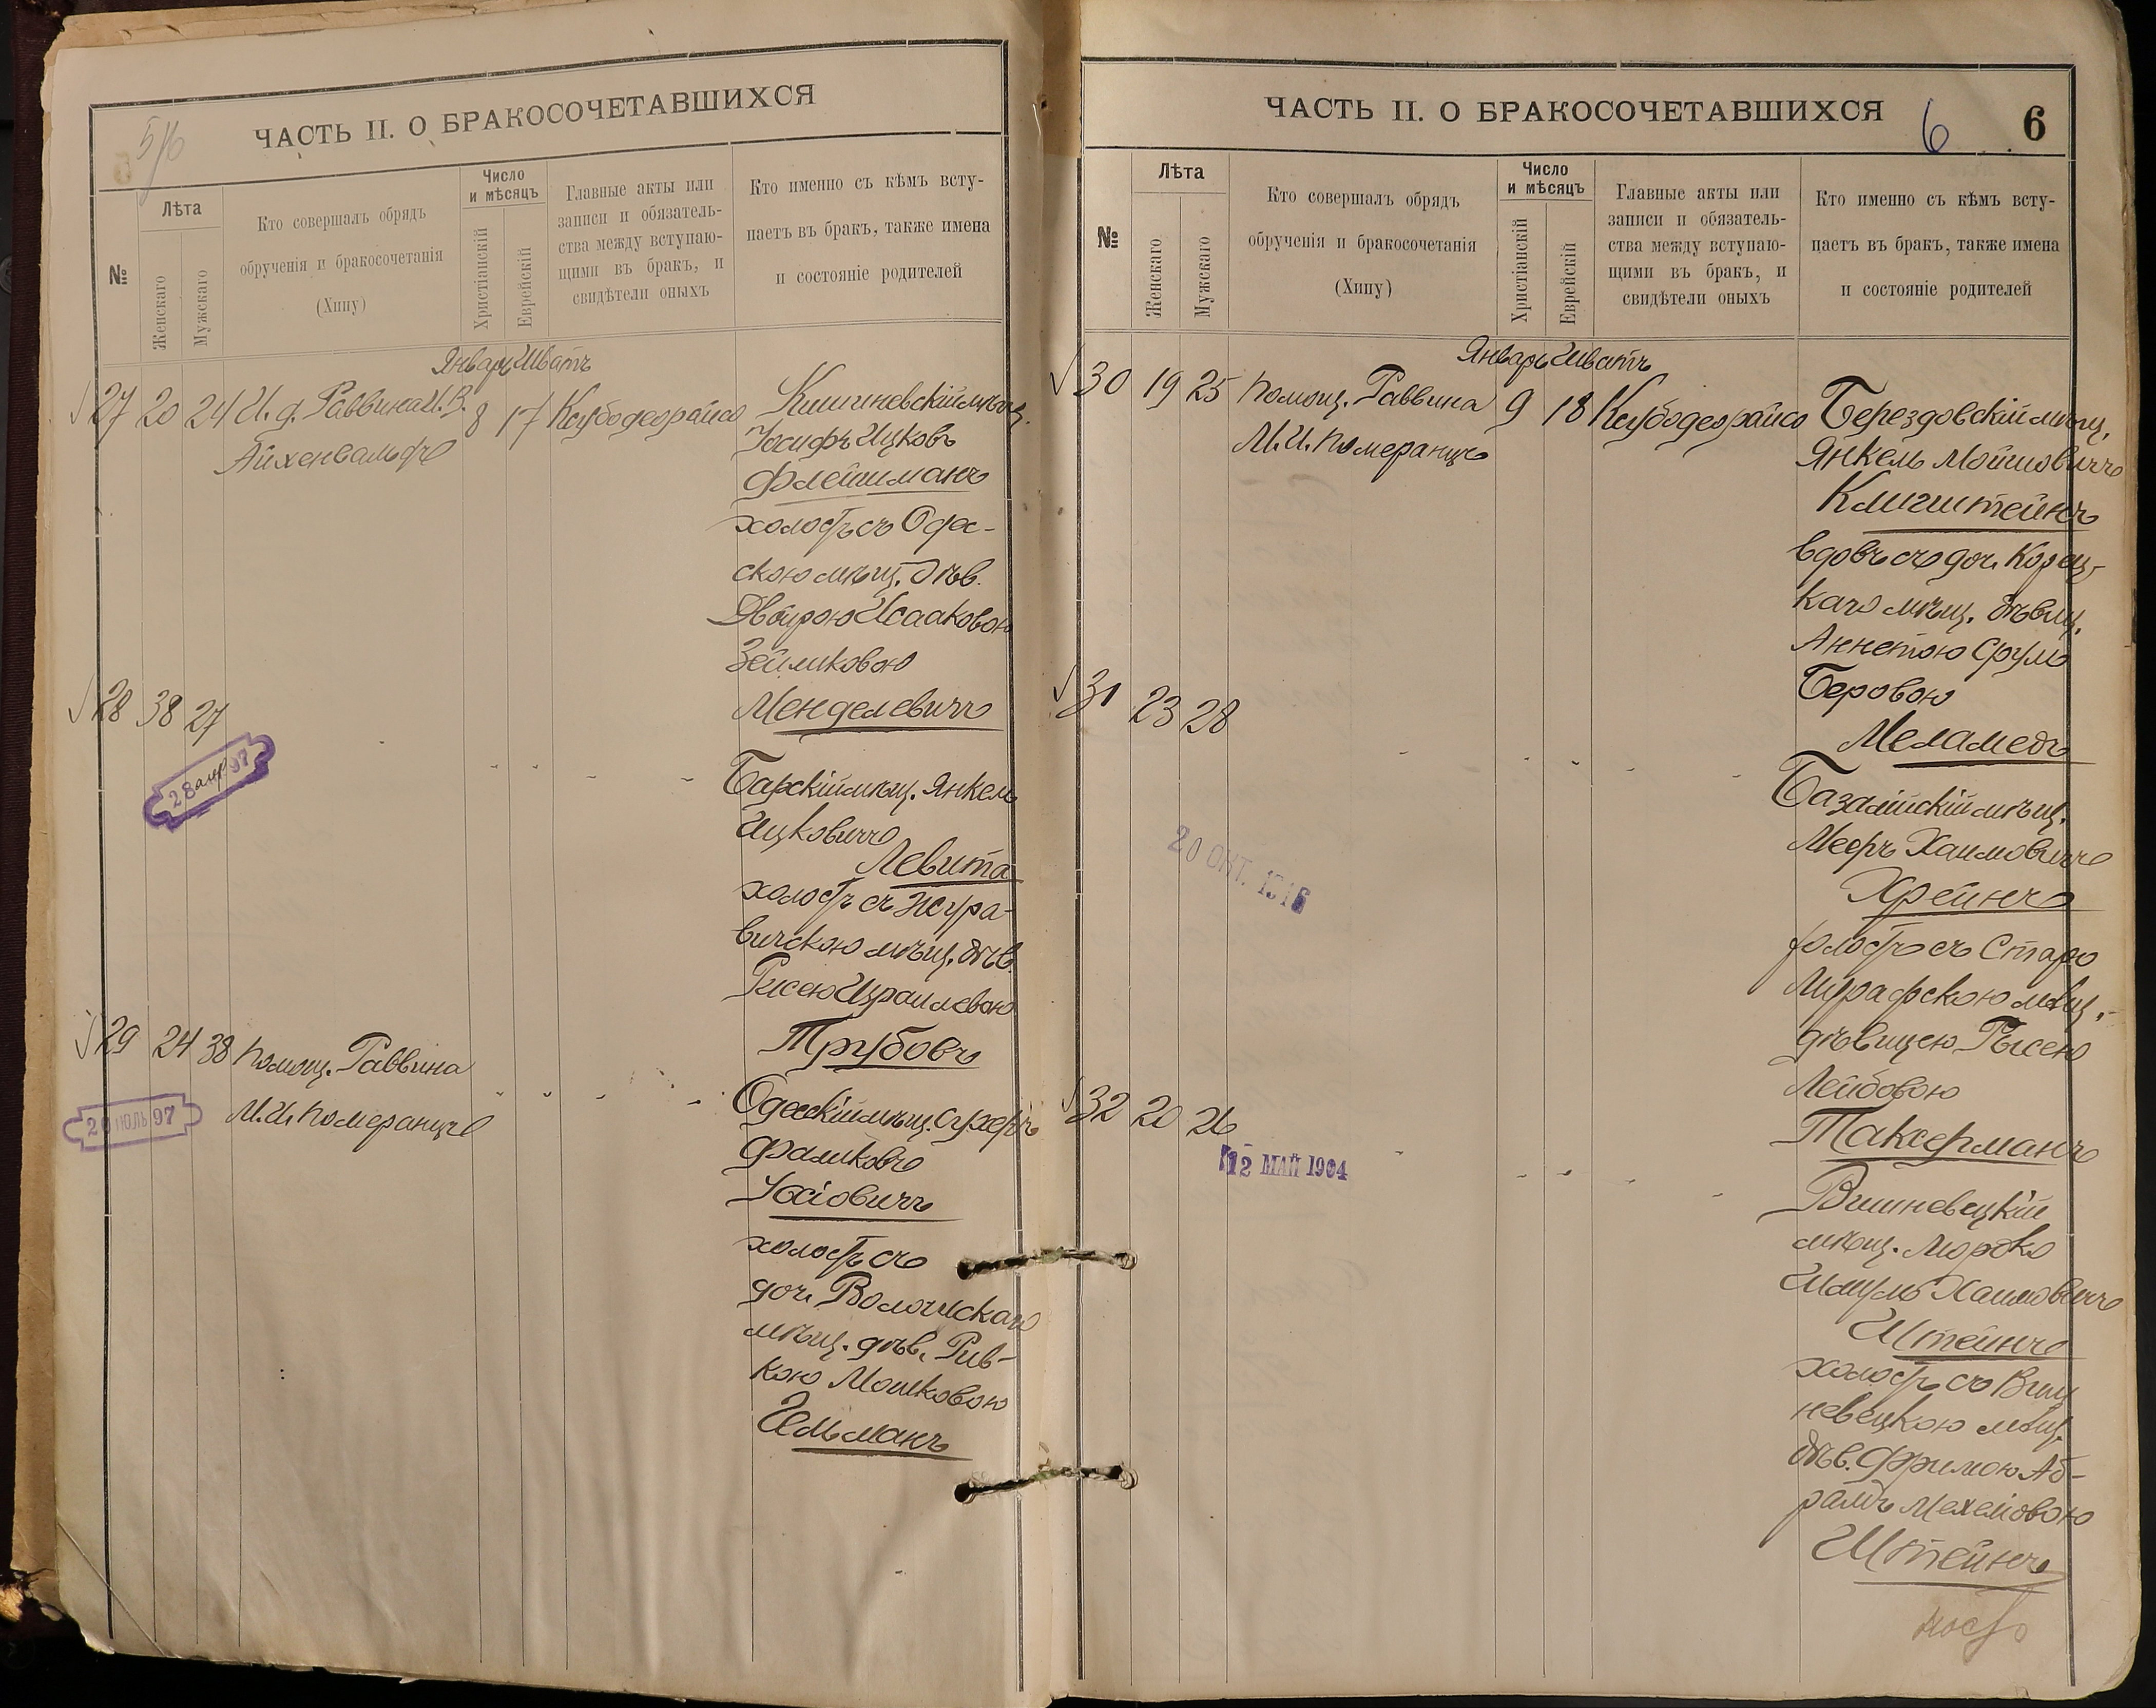 5/6
ЧАСТЬ II. О БРАКОСОЧЕТАВШИХСЯ
№
Лѣта
Женскаго
Мужскаго
Кто совершалъ обрядъ
обрученія и бракосочетанія
(Хипу)
Число
и мѣсяцъ
Христіанскій
Еврейскій
Главные акты или
записи и обязатель-
ства между вступаю-
щими въ бракъ, и
свидѣтели оныхъ
Кто именно съ кѣмъ всту-
паетъ въ бракъ, также имена
и состояніе родителей
Январь Шватъ
27 20 24 И. д. Раввина И. В. 8 17 Ксубодеорайсо
Айхенвальдъ
Кишиневскій мѣщ.
Іосифъ Ицковъ
Флейшманъ
холостъ съ Одес-
скою мѣщ. дѣв.
Двойрою Исааковою
Зейликовою
Менделевичъ
28 38 27
28 апр 97
Барскій мѣщ. Янкель
Ицковичъ
Левита
холостъ съ Жура-
вичскою мѣщ. дѣв.
Рисею Израилевою
Трубовъ
29 24 38 Помощ. Раввина
М. И. Померанцъ
20 ИЮЛЬ 97
Одесскій мѣщ. Сухеръ
Фаликовъ
Іосіовичъ
холостъ съ
доч. Волочискаго
мѣщ. дѣв. Рив-
кою Мошковою
Гельманъ
ЧАСТЬ II. О БРАКОСОЧЕТАВШИХСЯ
6
6
№
Лѣта
Женскаго
Мужскаго
Кто совершалъ обрядъ
обрученія и бракосочетанія
(Хипу)
Число
и мѣсяцъ
Христіанскій
Еврейскій
Главные акты или
записи и обязатель-
ства между вступаю-
щими въ бракъ, и
свидѣтели оныхъ
Кто именно съ кѣмъ всту-
паетъ въ бракъ, также имена
и состояніе родителей
Январь Шватъ
30 19 25 Помощ. Раввина 9 18 Ксубодеорайсо
М. И. Померанцъ
Берездовскій мѣщ.
Янкель Мошковичъ
Клигштейнъ
вдовъ съ доч. Корец-
каго мѣщ. дѣвиц.
Аннетою Сруль
Беровою
Меламедъ
31 23 28
20 ОКТ. 1916
Базалійскій мѣщ.
Мееръ Хаимовичъ
Хрейнъ
холостъ съ Старо
Мурафскою мѣщ.
дѣвицею Рысею
Лейбовою
Таксерманъ
32 20 26
12 МАЙ 1904
Вишневецкій
мѣщ. Мордко
Шмуль Хаимовичъ
Штейнъ
холостъ съ Виш
невецкою мѣщ.
дѣв. Фримою Аб-
рамъ Мехелевою
Штейнъ